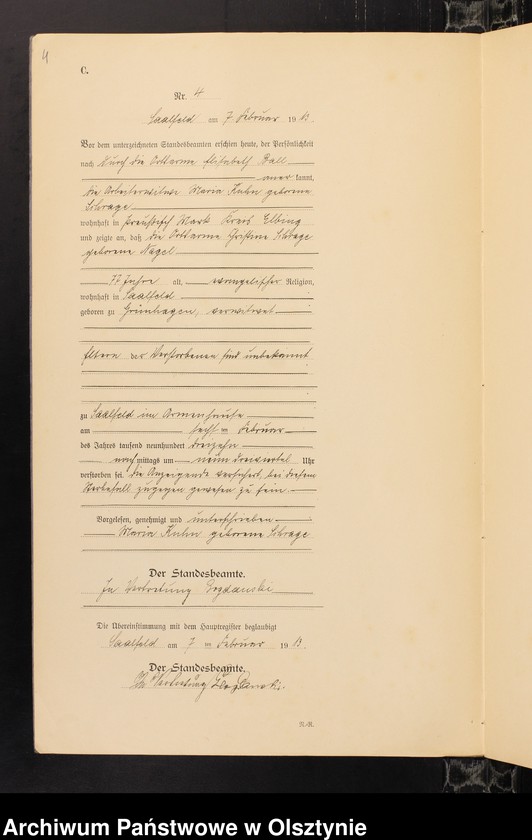 4
C.
Nr. 4
Saalfeld am 7 Februar 1913.
Vor dem unterzeichneten Standesbeamten erschien heute, der Persönlichkeit
nach durch die Ortsarme Elisabeth Ball
aner kannt,
die Arbeiterwitwe Maria Kuhn geborene
Schrage
wohnhaft in Preußisch Mark Kreis Elbing
und zeigte an, daß die Ortsarme Christine Schrage
geborene Nagel
77 Jahre alt, evangelischer Religion,
wohnhaft in Saalfeld
geboren zu Grünhagen, verwitwet
Eltern der Verstorbenen sind unbekannt
zu Saalfeld im Armenhause
am sechsten Februar
des Jahres tausend neunhundert dreizehn
nachmittags um neun dreiviertel Uhr
verstorben sei. Die Anzeigende versichert, bei diesem
Sterbefall zugegen gewesen zu sein.
Vorgelesen, genehmigt und unterschrieben
Maria Kuhn geborene Schrage
Der Standesbeamte.
In Vertretung Bogdanski
Die Übereinstimmung mit dem Hauptregister beglaubigt
Saalfeld am 7ten Februar 1913.
Der Standesbeamte.
In Vertretung Bogdanski.
N.-R.
Archiwum Państwowe w Olsztynie